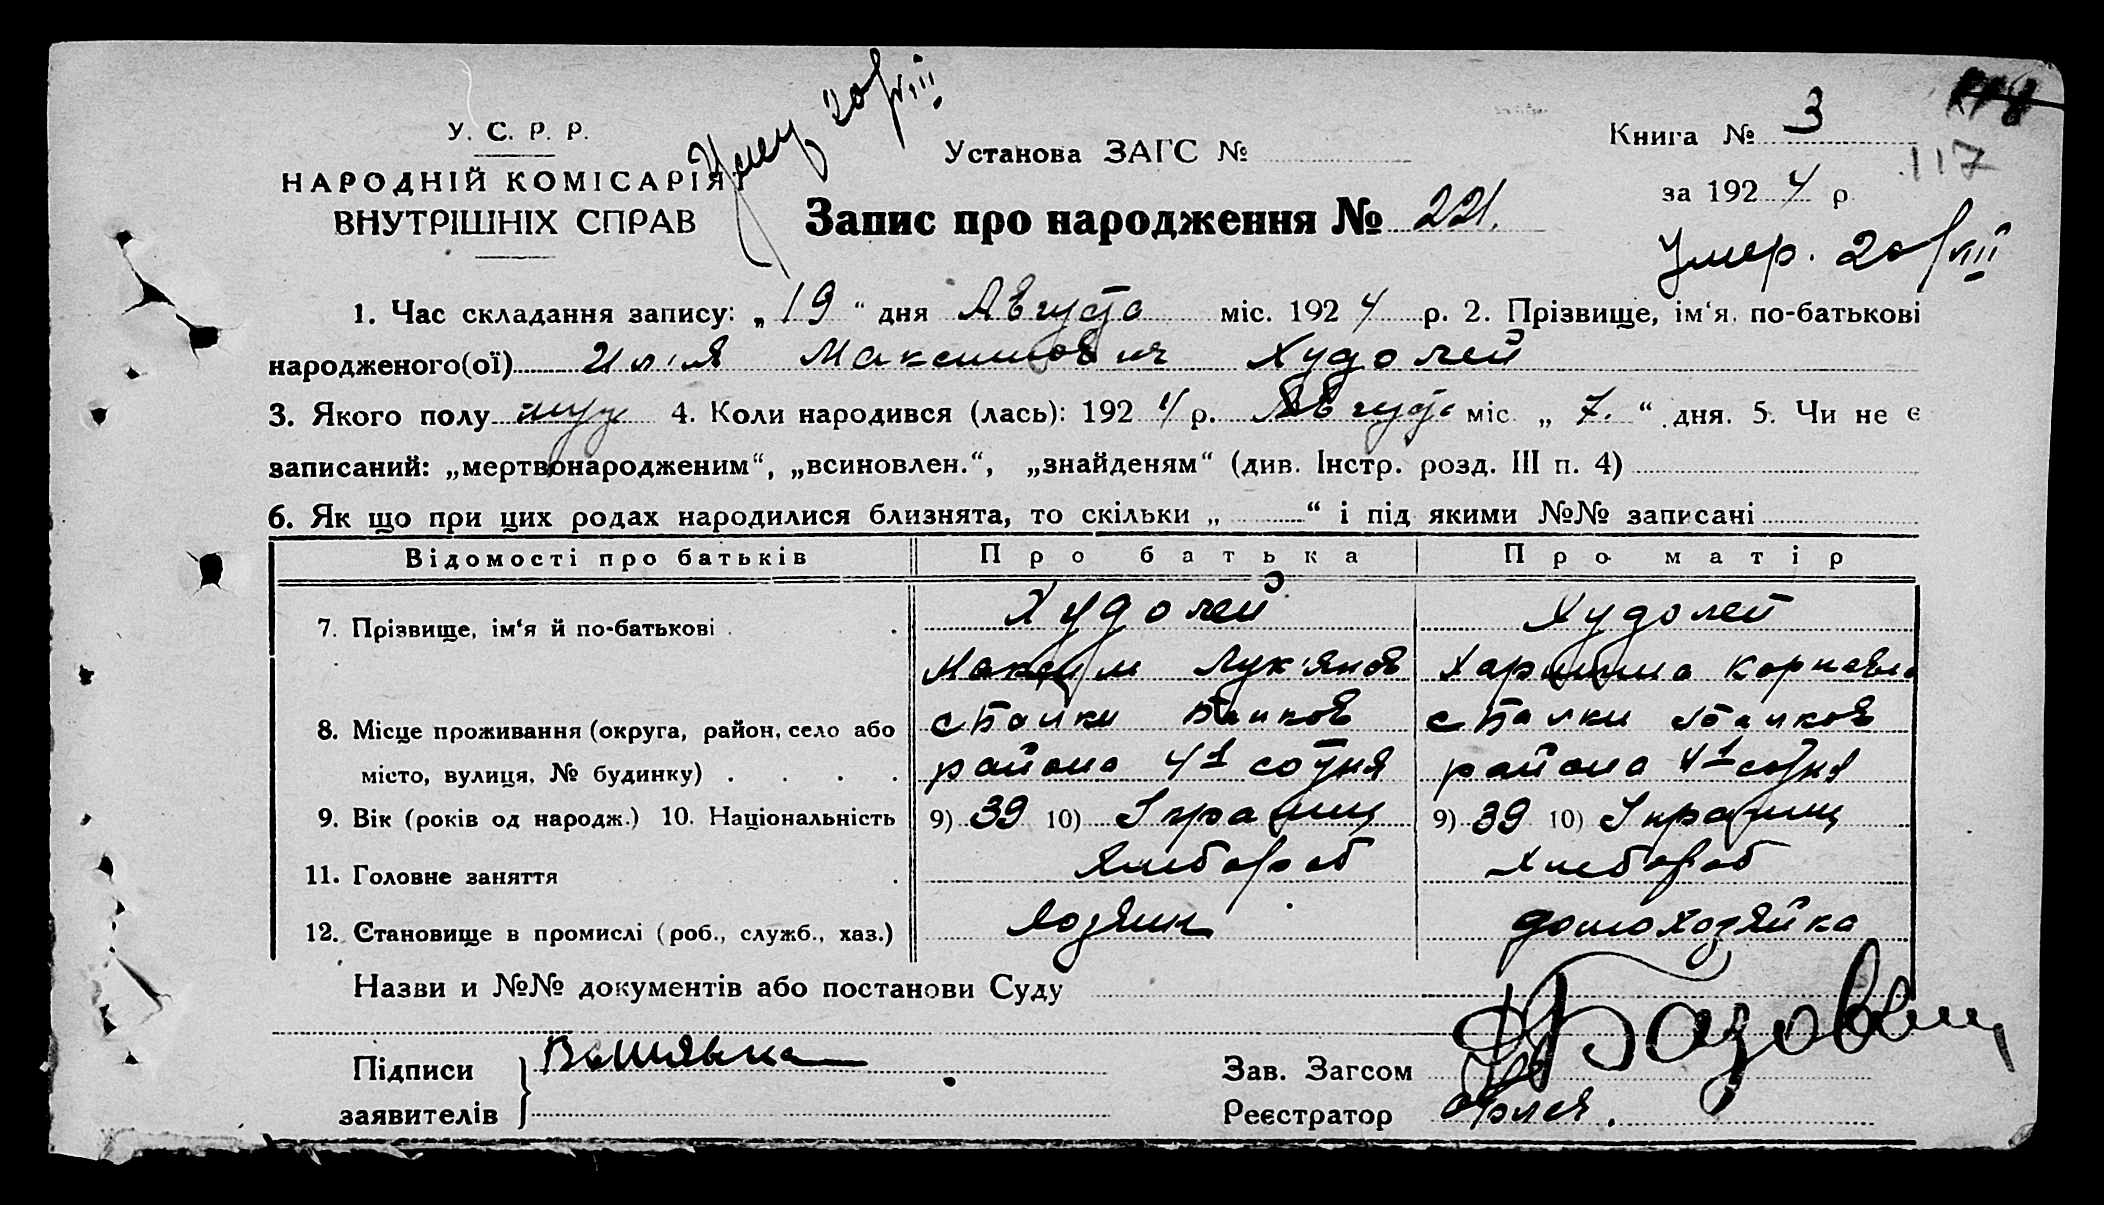 Умер 20/VIII
У. С. Р. Р.
НАРОДНІЙ КОМІСАРІЯТ
ВНУТРІШНІХ СПРАВ
Установа ЗАГС №
Книга № 3
117
за 1924 р
Запис про народження № 221.
Умер. 20/VIII
1. Час складання запису: „19“ дня Августа міс. 1924 р. 2. Прізвище, ім‘я, по-батькові
народженого(ої) Илія Максимович Худолей
3. Якого полу муж 4. Коли народився (лась): 1924 р. Август міс. „7.“ дня. 5. Чи не є
записаний: „мертвонародженим“, „всиновлен.“, „знайденям“ (див. Інстр. розд. III п. 4)
6. Як що при цих родах народилися близнята, то скільки „ “ і під якими №№ записані
Відомості про батьків Про батька Про матір
7. Прізвище, ім‘я й по-батькові Худолей Худолей
Максим Лук'янов Харитина Корнеевна
8. Місце проживання (округа, район, село або с Балки Балков с Балки Балков
місто, вулиця, № будинку) района 4я сотня района 4я сотня
9. Вік (років од народж.) 10. Національність 9) 39 10) Украинц 9) 39 10) Украинц
11. Головне заняття Хлебороб Хлебороб
12. Становище в промислі (роб., служб., хаз.) хозяин домохозяйка
Назви и №№ документів або постанови Суду
Підписи
заявителів
Зав. Загсом
Реєстратор